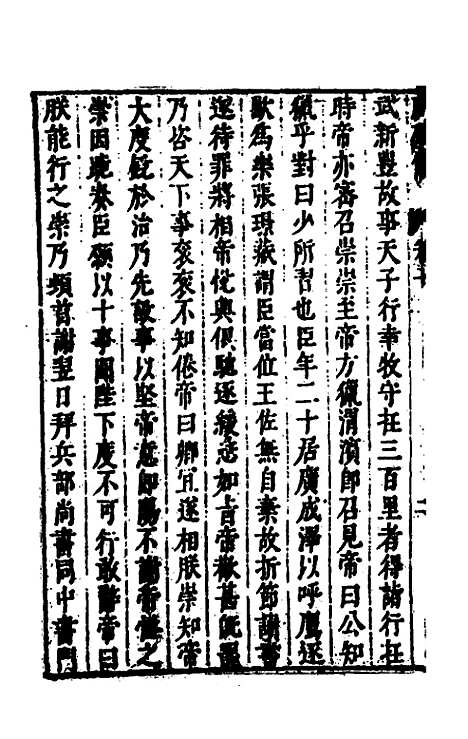 武新豐故事天子行幸牧守在三百里者得詣行在
時帝亦密召崇崇至帝方獵渭濱卽召見帝曰公知
獵乎對曰少所習也臣年二十居廣成澤以呼鷹逐
獸爲樂張璟藏謂臣當位王佐無自棄故折節讀書
遂待罪將相帝悅與俱馳逐緩急如旨帝歡甚旣罷
乃咨天下事袞袞不知倦帝曰卿宜遂相朕崇知帝
大度銳於治乃先設事以堅帝意卽陽不謝帝怪之
崇因跪奏臣願以十事聞陛下度不可行敢辭帝曰
朕能行之崇乃頓首謝翌日拜兵部尚書同中書門